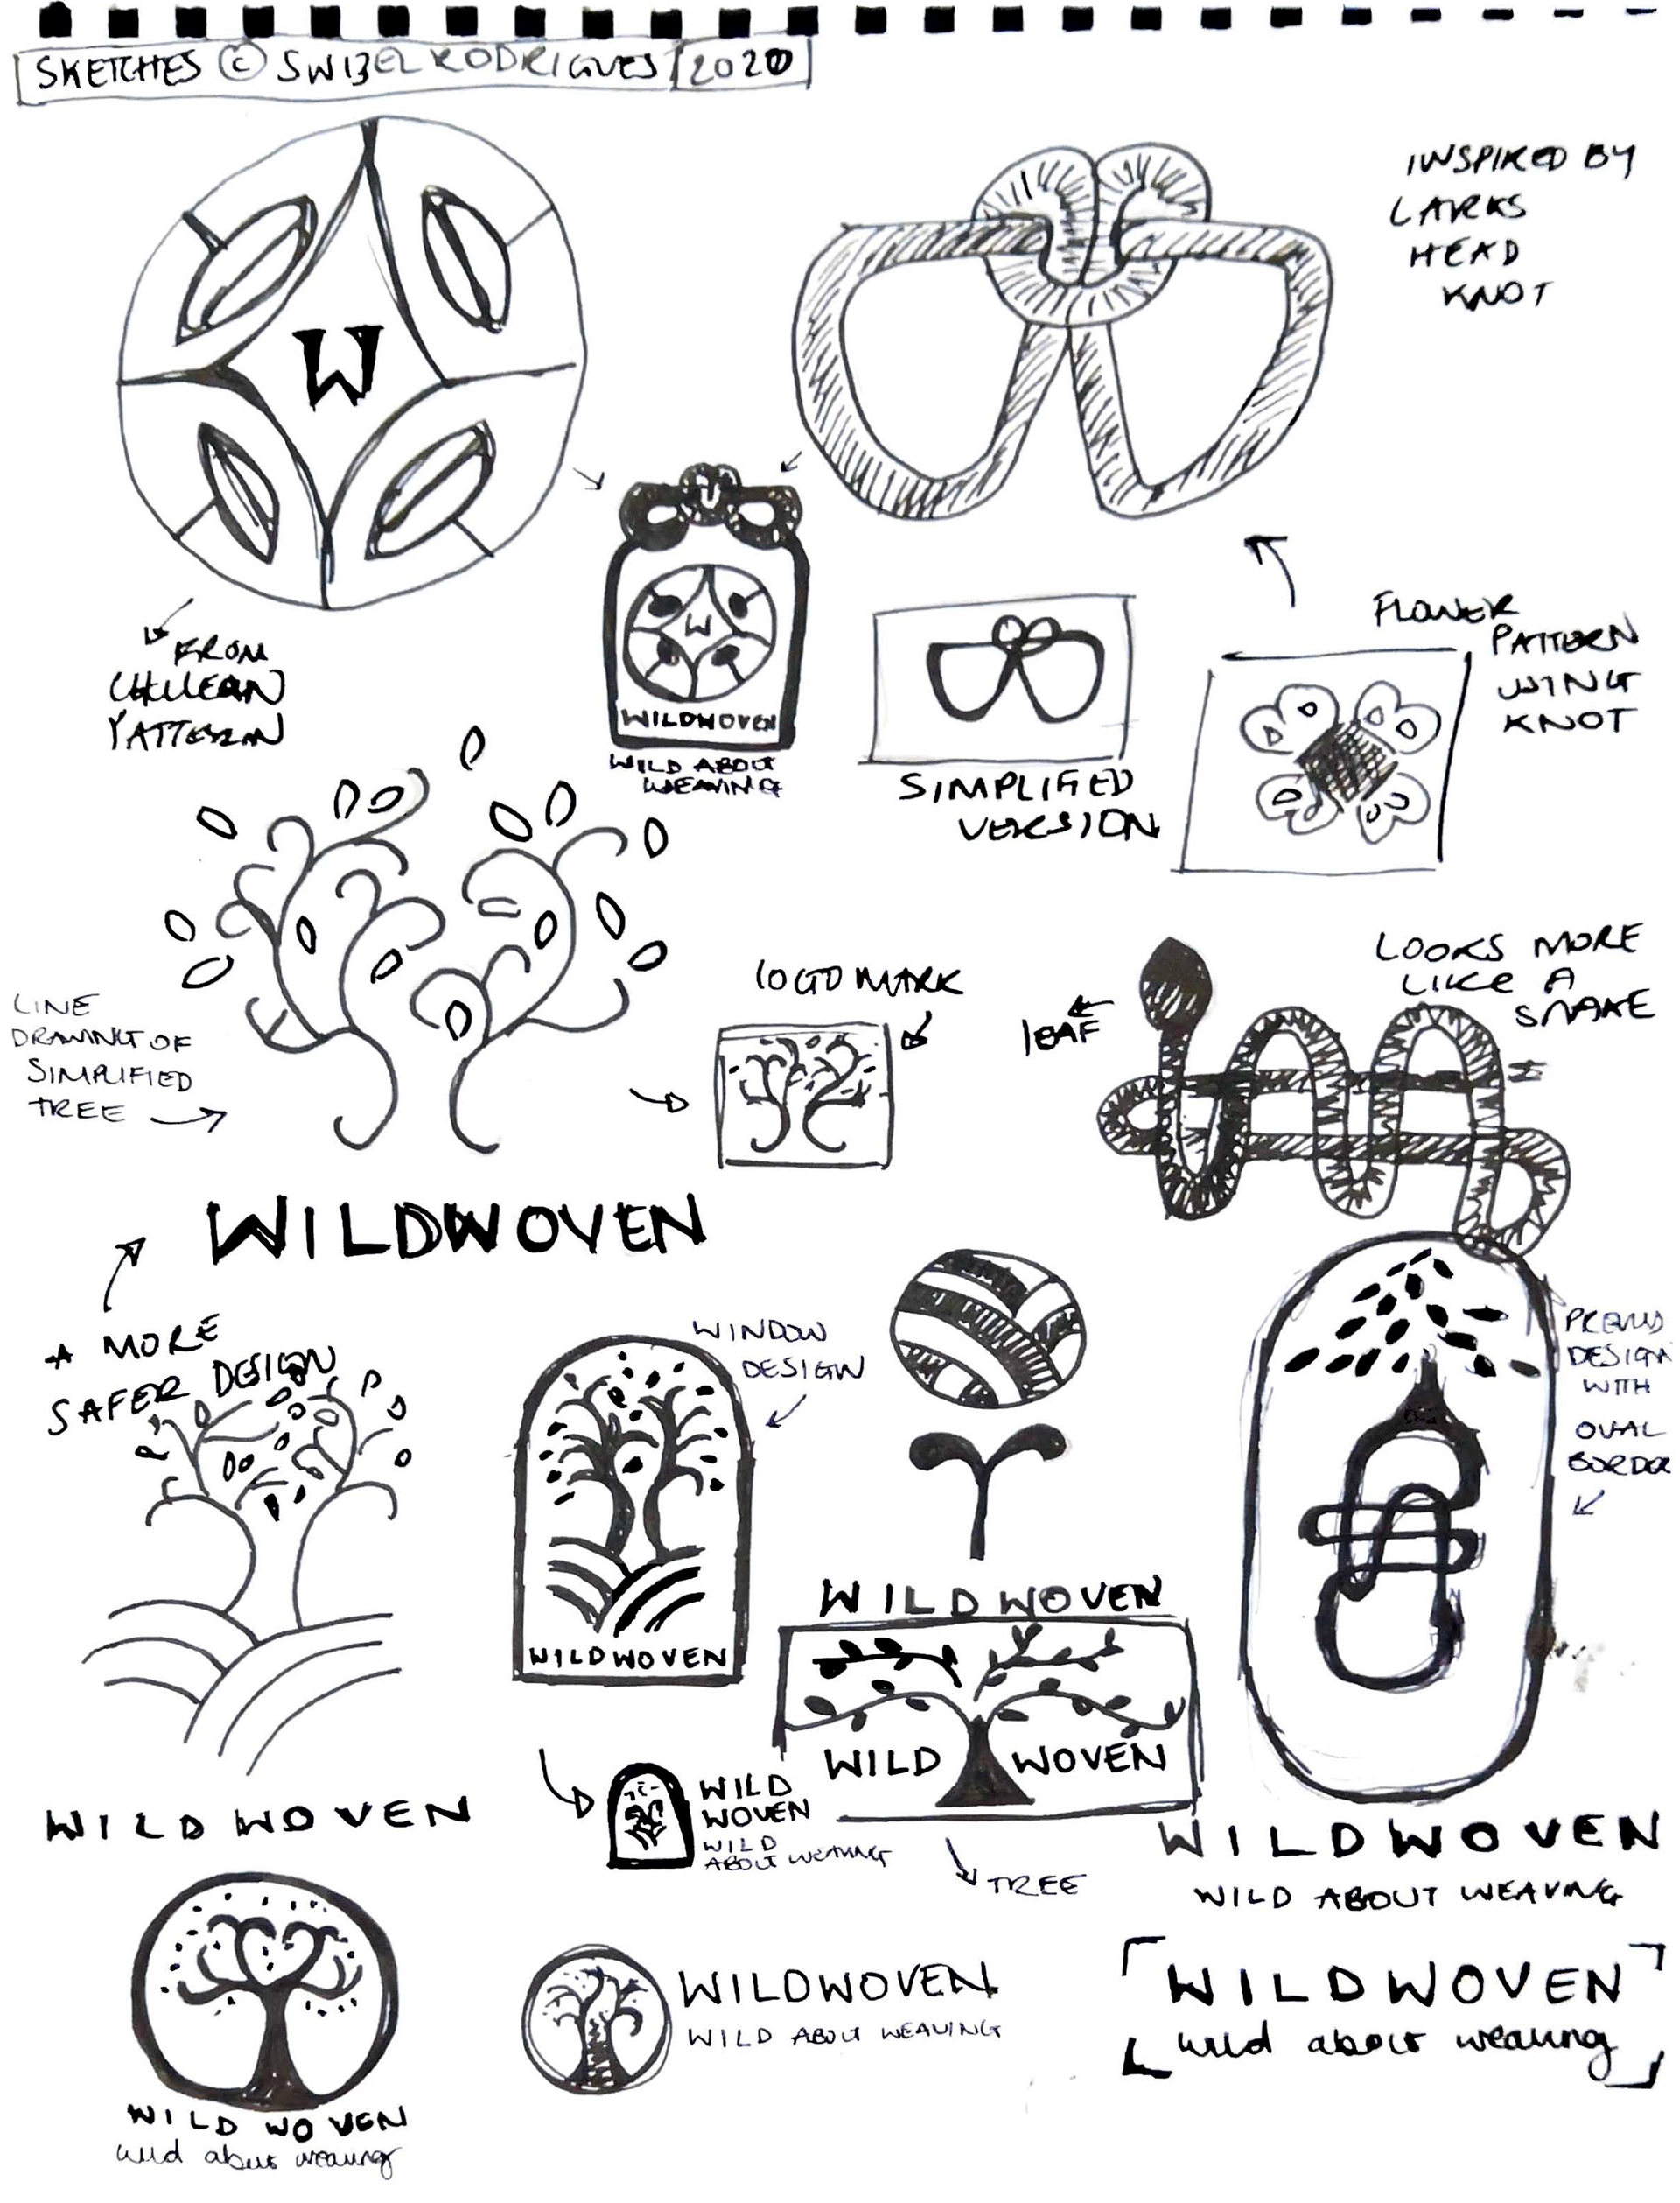 SKETCHES © SWIZEL RODRIGUES 2020
INSPIRED BY
LARKS
HEAD
KNOT
W
FROM
CHILEAN
PATTERN
W
WILDWOVEN
WILD ABOUT
WEAVING
SIMPLIFIED
VERSION
FLOWER
PATTERN
USING
KNOT
LINE
DRAWING OF
SIMPLIFIED
TREE
LOGO MARK
leAF
LOOKS MORE
LIKE A
SNAKE
WILDWOVEN
A MORE
SAFER DESIGN
WINDOW
DESIGN
WILDWOVEN
WILDWOVEN
WILD WOVEN
TREE
DESIGN
WITH
OVAL
BORDER
WILD WOVEN
WILD
WOVEN
WILD
ABOUT WEAVING
WILDWOVEN
WILD ABOUT WEAVING
WILD WOVEN
wild about weaving
WILDWOVEN
WILD ABOUT WEAVING
WILDWOVEN
wild about weaving